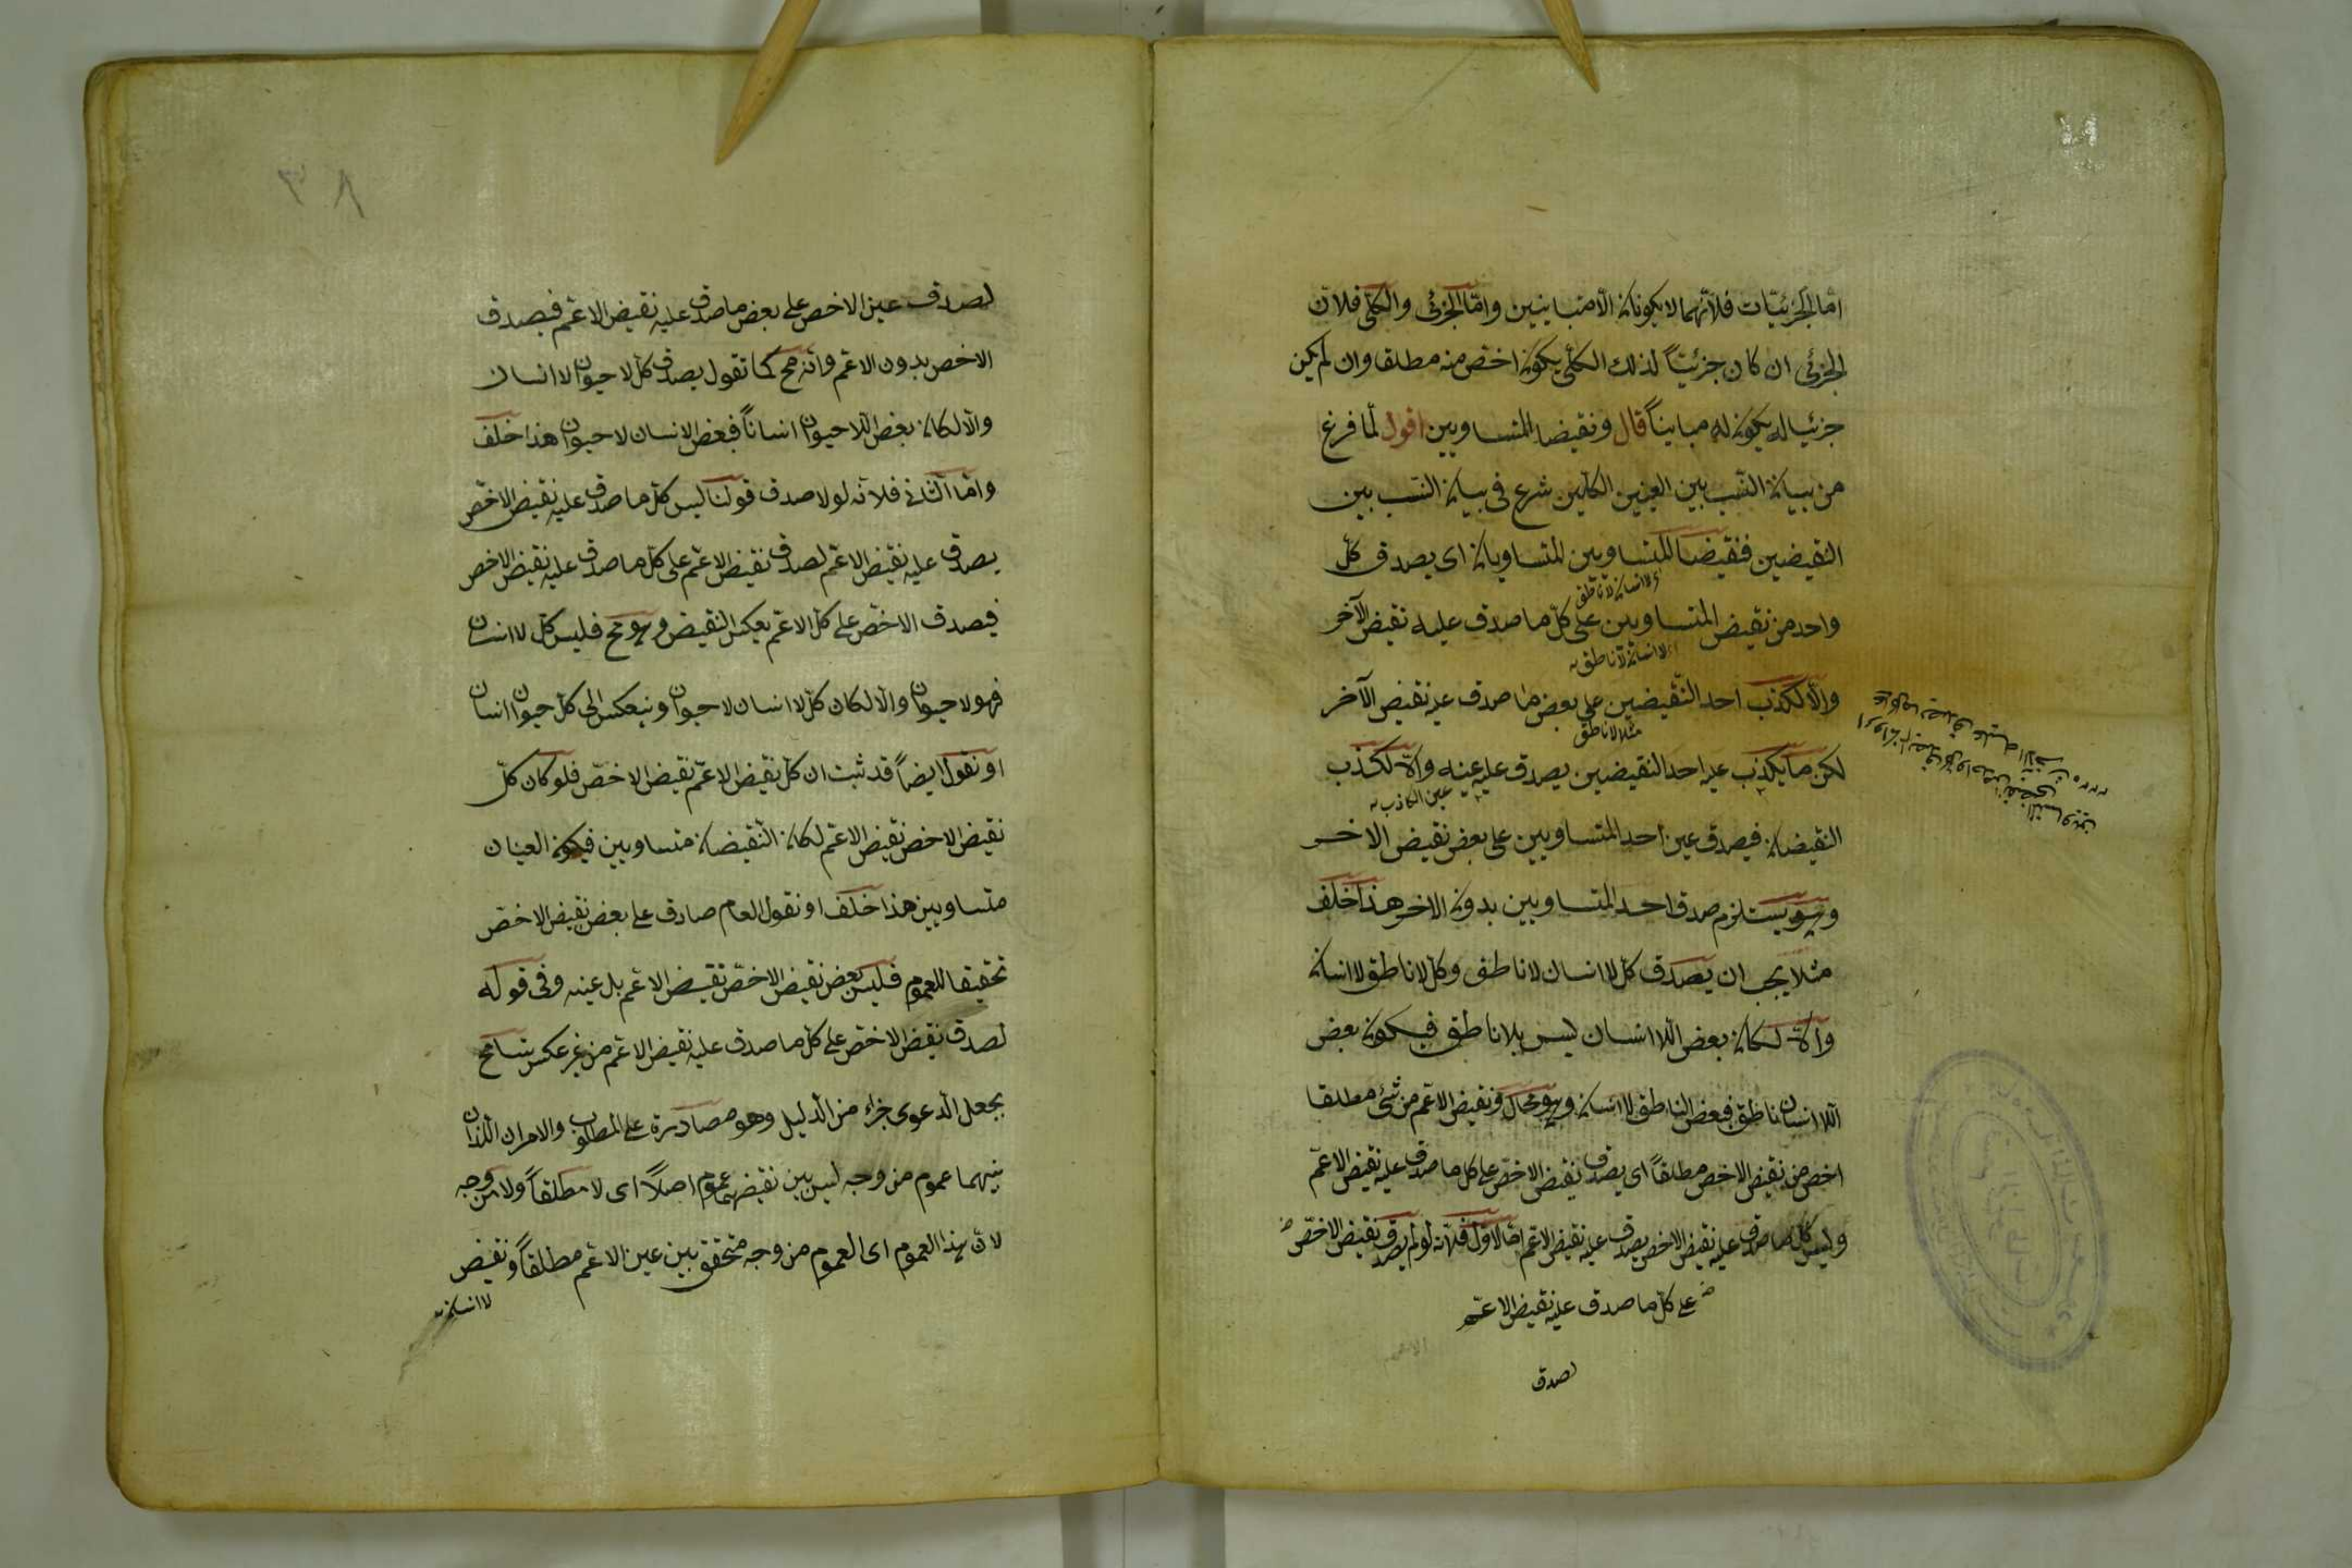 اما الجزئيات فلانهما لا يكونان الا متباينين واما الجزئى والكلى فلان
الجزئى ان كان جزئيا لذلك الكلى يكون اخص منه مطلقا وان لم يكن
جزئيا له يكون له مباينا قال ونقيضا المتساويين اقول لما فرغ
من بيان النسب بين العينين الكليين شرع فى بيان النسب بين
النقيضين فنقيضا المتساويين المتساويان اى يصدق كل
اى لا انسان لا ناطق
واحد من نقيض المتساويين على كل ما صدق عليه نقيض الآخر
لا انسان لا ناطق
والا لكذب احد النقيضين على بعض ما صدق عليه نقيض الآخر
مثلا لا ناطق
لكن ما يكذب عليه احد النقيضين يصدق عليه عينه والا لكذب
عين الكاذب
النقيضان فيصدق عين احد المتساويين على بعض نقيض الاخر
وهو يستلزم صدق احد المتساويين بدون الاخر هذا خلف
مثلا يجب ان يصدق كل لا انسان لا ناطق وكل لا ناطق لا انسان
والا لكان بعض اللا انسان ليس بلا ناطق فيكون بعض
اللا انسان ناطق فبعض الناطق لا انسان وهو محال ونقيض الاعم من شئ مطلقا
اخص من نقيض الاخص مطلقا اى يصدق نقيض الاخص على كل ما صدق عليه نقيض الاعم
وليس كل ما صدق عليه نقيض الاخص يصدق عليه نقيض الاعم اما الاول فلانه لو لم يصدق نقيض الاخص
على كل ما صدق عليه نقيض الاعم
لصدق
٣٨
لصدق عين الاخص على بعض ما صدق عليه نقيض الاعم فيصدق
الاخص بدون الاعم وانه مح كما تقول يصدق كل لا حيوان لا انسان
والا لكان بعض اللا حيوان انسانا فبعض الانسان لا حيوان هذا خلف
واما الثانى فلانه لولا صدق قولنا ليس كل ما صدق عليه نقيض الاخص
يصدق عليه نقيض الاعم لصدق نقيض الاعم على كل ما صدق عليه نقيض الاخص
فيصدق الاخص على كل الاعم بعكس النقيض وهو مح فليس كل لا انسان
فهو لا حيوان والا لكان كل لا انسان لا حيوان وينعكس الى كل حيوان انسان
او نقول ايضا قد ثبت ان كل نقيض الاعم نقيض الاخص فلو كان كل
نقيض الاخص نقيض الاعم لكان النقيضان متساويين فيكون العينان
متساويين هذا خلف او نقول العام صادق على بعض نقيض الاخص
تحقيقا للعموم فليس بعض نقيض الاخص نقيض الاعم بل عينه وفى قوله
لصدق نقيض الاخص على كل ما صدق عليه نقيض الاعم من غير عكس تسامح
بجعل الدعوى جزء من الدليل وهو مصادرة على المطلوب والامران اللذان
بينهما عموم من وجه ليس بين نقيضهما عموم اصلا اى لا مطلقا ولا من وجه
لان هذا العموم اى العموم من وجه متحقق بين عين الاعم مطلقا ونقيض
لا انسان